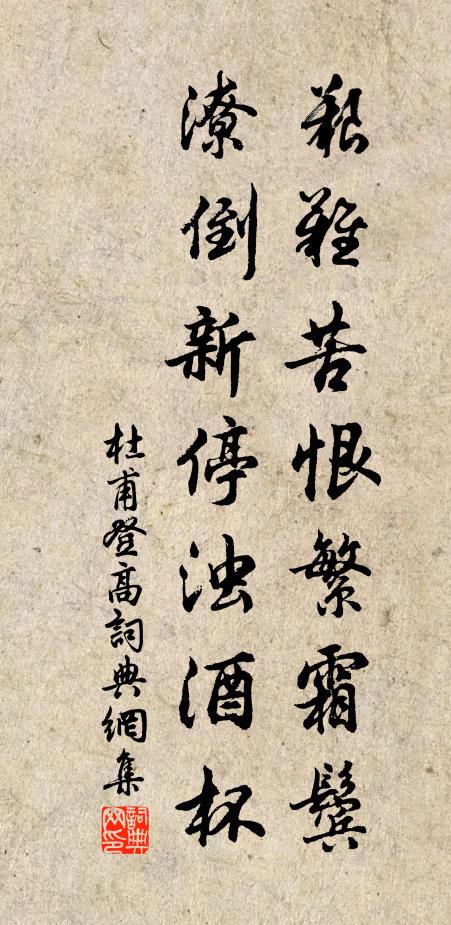 艱難苦恨繁霜鬢
潦倒新停浊酒杯
杜甫登高詞典網集
詞典网印